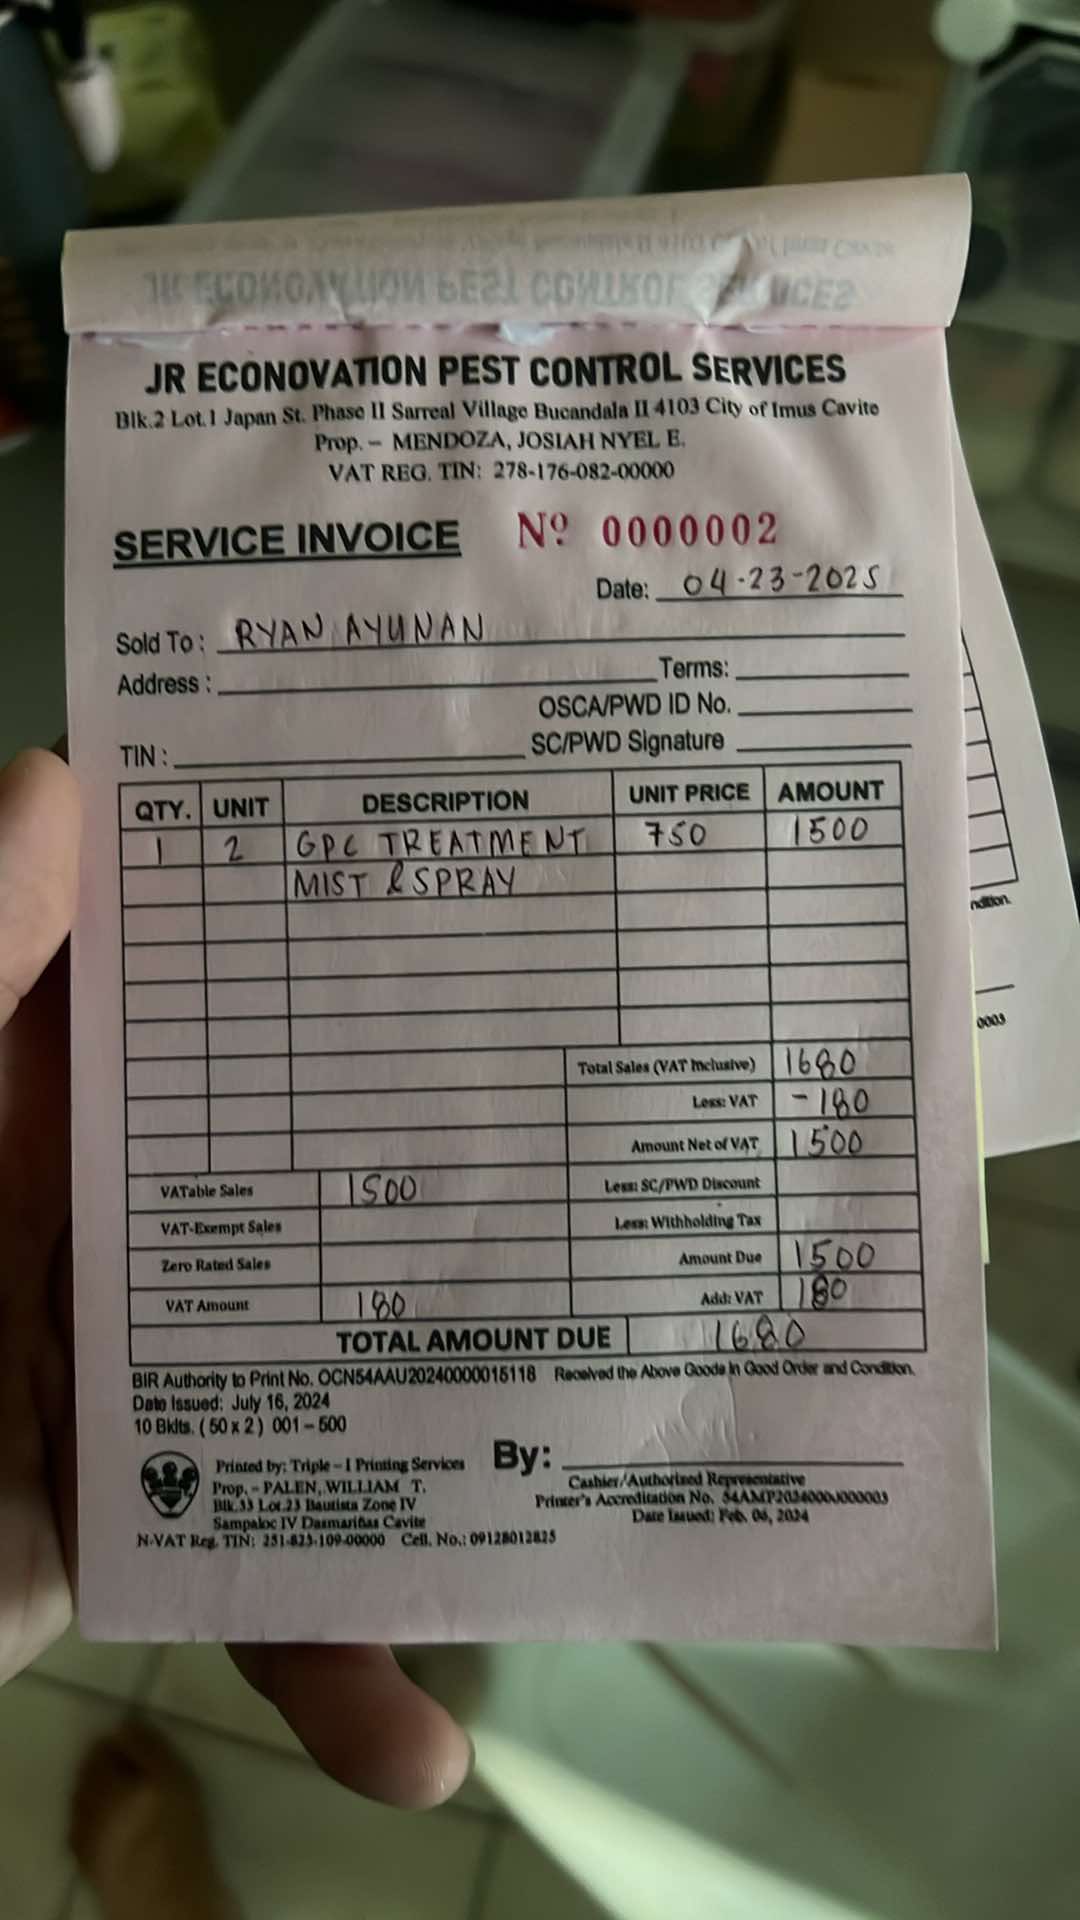 JR ECONOVATION PEST CONTROL SERVICES
JR ECONOVATION PEST CONTROL SERVICES
Blk.2 Lot.1 Japan St. Phase II Sarreal Village Bucandala II 4103 City of Imus Cavite
Prop. – MENDOZA, JOSIAH NYEL E.
VAT REG. TIN: 278-176-082-00000
SERVICE INVOICE Nº 0000002
Date: 04-23-2025
Sold To: RYAN AYUNAN
Address: Terms:
OSCA/PWD ID No.
TIN: SC/PWD Signature
QTY. UNIT DESCRIPTION UNIT PRICE AMOUNT
1 2 GPC TREATMENT 750 1500
MIST & SPRAY
ndition.
0003
Total Sales (VAT Inclusive) 1680
Less: VAT - 180
Amount Net of VAT 1500
VATable Sales 1500 Less: SC/PWD Discount
VAT-Exempt Sales Less: Withholding Tax
Zero Rated Sales Amount Due 1500
VAT Amount 180 Add: VAT 180
TOTAL AMOUNT DUE 1680
BIR Authority to Print No. OCN54AAU20240000015118 Received the Above Goods in Good Order and Condition.
Date Issued: July 16, 2024
10 Bklts. (50 x 2) 001 – 500
By:
Printed by: Triple – I Printing Services
Prop. – PALEN, WILLIAM T.
Blk.33 Lot.23 Bautista Zone IV
Sampaloc IV Dasmariñas Cavite
N-VAT Reg. TIN: 251-823-109-00000 Cell. No.: 09128012825
Cashier/Authorized Representative
Printer's Accreditation No. 54AMP20240000000003
Date Issued: Feb. 06, 2024